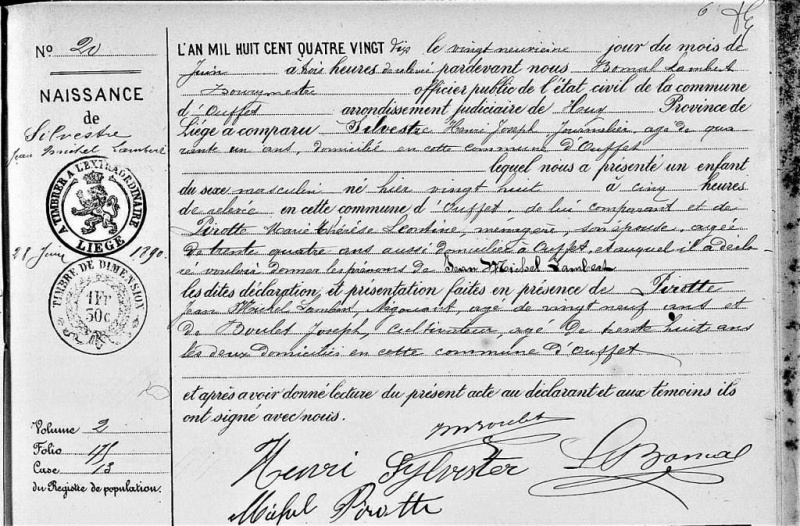 6
Nº 20
NAISSANCE
de
Silvestre
Jean Michel Lambert
A TIMBRER A L'EXTRAORDINAIRE
LIEGE
28 Juin 1890.
TIMBRE DE DIMENSION
1 Fr
50 c
Volume 2
Folio
Case 13
du Registre de population.
L'AN MIL HUIT CENT QUATRE VINGT dix le vingt neuvieme jour du mois de
Juin à huit heures de relevée pardevant nous Bomal Lambert
Bourgmestre officier public de l'état civil de la commune
d'Ouffet arrondissement judiciaire de Huy Province de
Liège a comparu Silvestre Henri Joseph Journalier, agé de qua
rante un ans, domicilié en cette commune d'Ouffet
lequel nous a présenté un enfant
du sexe masculin né hier vingt huit à cinq heures
de relevée en cette commune d'Ouffet de lui comparant et de
Pirotte Marie Thérèse Léontine, ménagère, son epouse, agée
de trente quatre ans aussi domiciliée à Ouffet, et auquel il a decla
ré vouloir donner les prénoms de Jean Michel Lambert
les dites déclaration et présentation faites en présence de Pirotte
Jean Michel Lambert, Négociant, agé de vingt neuf ans et
de Boulet Joseph, Cultivateur, agé de trente huit ans
les deux domiciliés en cette commune d'Ouffet
et après avoir donné lecture du présent acte au déclarant et aux témoins ils
ont signé avec nous.
Boulet
Henri Sylvester L Bomal
Michel Pirotte